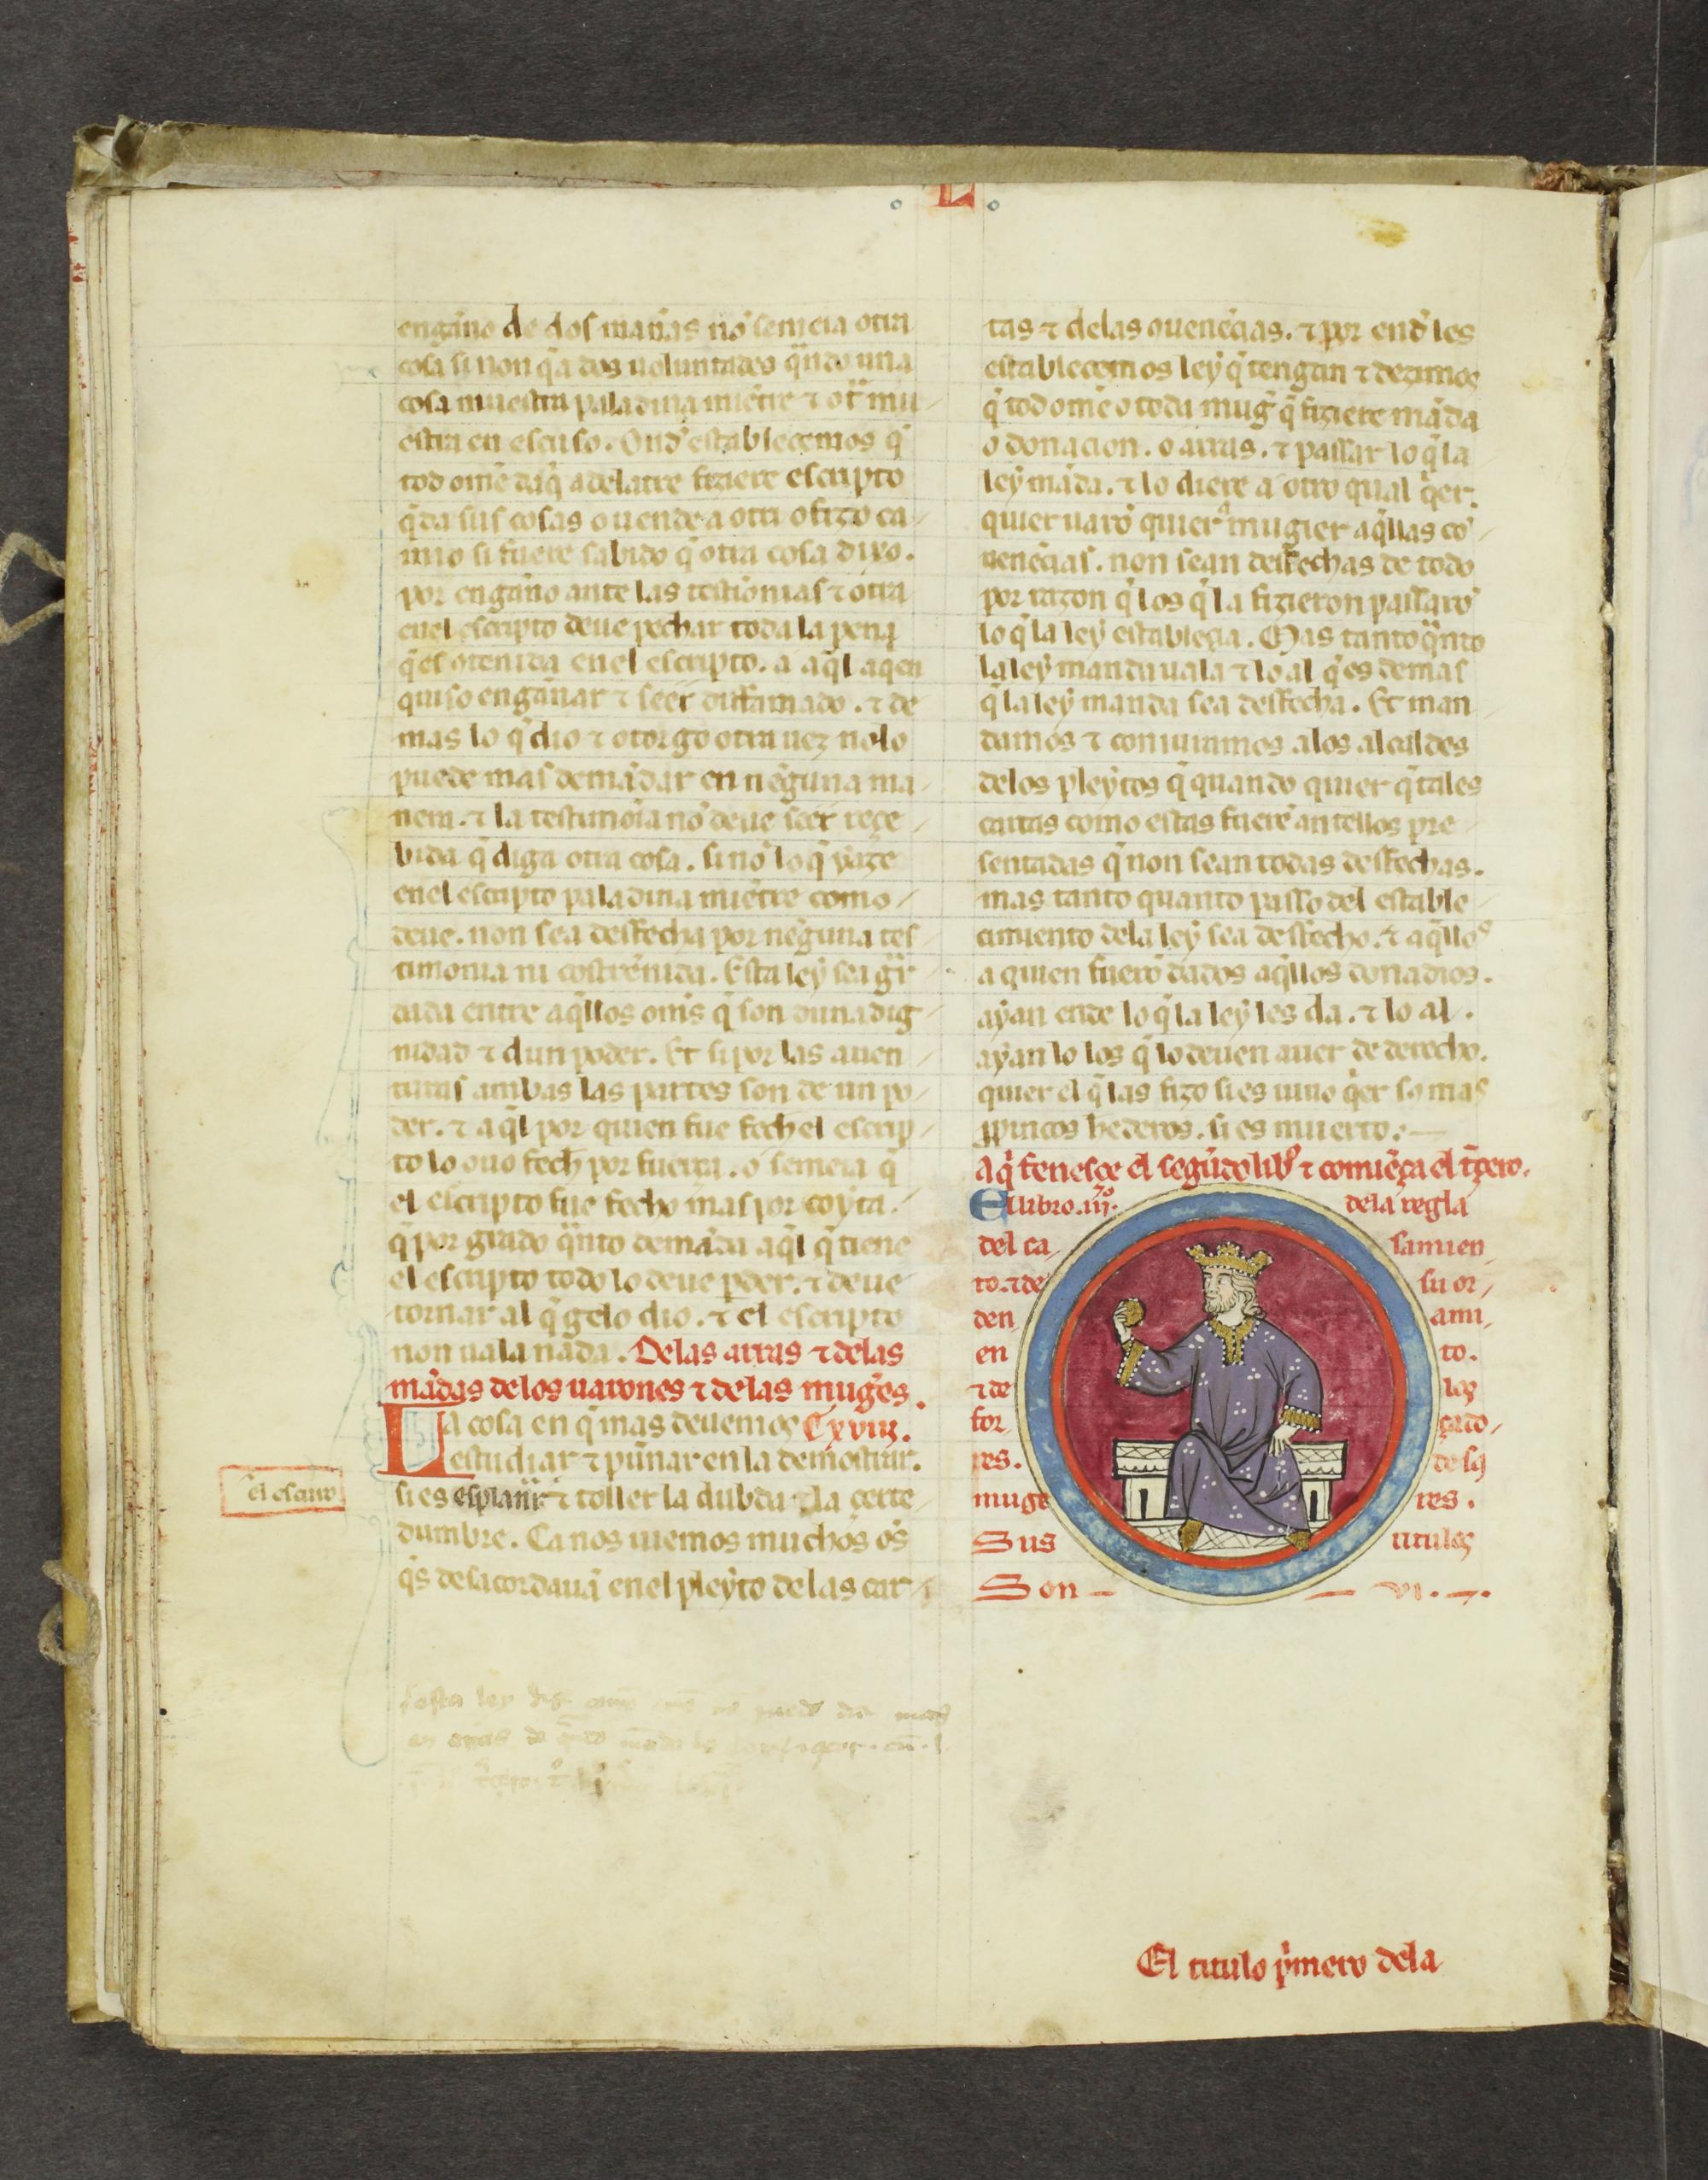 L
engano de dos maneras nō semeia otra
cosa si non q̄ a dos uoluntades q̄ndo una
cosa muestra paladina miētre ⁊ ot̃ mu
estra en escuso. Ond̄ establecemos q̄
tod omē daq̄ adelātre fiziere escripto
q̄ da sus cosas o uende a otri o fizo ca
mio si fuere sabido q̄ otra cosa dixo.
por engāno ante las testīonias ⁊ otra
en el escripto deue pechar toda la pena
q̄ es ɔtenida en el escripto. a aq̄l aqen
quiso engānar ⁊ seer diffamado. ⁊ de
mas lo q̄ dio ⁊ otorgo otra uez nōlo
puede mas demādar en nēguna ma
nera. ⁊ la testimōia nō deue seer reçe
bida q̄ diga otra cosa. si nō lo q̄ yaze
enel escripto paladina miētre como
deue. non sea desfecha por nēguna tes
timonia ni costrēnida. Esta ley sea gr̃
dada entre aq̄llos om̄s q̄ son duna dig
nidad ⁊ dun poder. Et si por las auen
turas ambas las partes son de un po
der. ⁊ aq̄l por quien fue fech el escrip
to lo ouo fech por fuerça. o semeia q̄
el escripto fue fecho mas por coyta.
q̄ por grado q̄nto demāda aq̄l q̄ tiene
el escripto todo lo deue pder. ⁊ deue
tornar al q̄ gelo dio. ⁊ el escripto
non uala nada. Delas arras ⁊ delas
mādas delos uarones ⁊ delas mugēs.
La cosa en q̄ mas deuemos Cxviij.
estudiar ⁊ pūnar en la demostrar.
si es esplanar ⁊ toller la dubda ⁊ la çerte
dumbre. Ca nos uiemos muchos os̄
q̄s desacordauā en el pleyto de las car
el escuro
tas ⁊ delas ɔuenēcias. ⁊ por end̄ les
establecemos ley q̄ tengan ⁊ dezimos
q̄ tod omē o toda mug̃ q̄ fiziere māda
o donacion. o arras. ⁊ passar lo q̄ la
ley māda. ⁊ lo diere a otro qual q̄er.
quier uarō quier mugier aq̄llas cō
uenēcias. non sean desfechas de todo
por razon q̄ los q̄ la fizieron passarō
lo q̄ la ley establecia. Mas tanto q̄nto
la ley manda uala ⁊ lo al q̄ es demas
q̄ la ley manda sea desfecha. Et man
damos ⁊ coniuramos alos alcaldes
delos pleytos q̄ quando quier q̄ tales
cartas como estas fuerē antellos pre
sentadas q̄ non sean todas desfechas.
mas tanto quanto passo del estable
cimiento dela ley sea desfecho. ⁊ aq̄llos
a quien fuerō dados aq̄llos donadios.
ayan ende lo q̄ la ley les da. ⁊ lo al.
ayan lo los q̄ lo deuen auer de derecho.
quier el q̄ las fizo si es uiuo q̄er so mas
ꝓpincos hederos. si es muerto.
Aq̄ fenesçe el segūdo lib̄ ⁊ comiēça el t̃çero.
El libro .iij.º dela regla
del ca samien
to. ⁊ de su or
den ami
en to.
⁊ de los
for çado
res. de las
muge res.
Sus titulos
Son vi.
esta ley
El titulo p̄mero dela